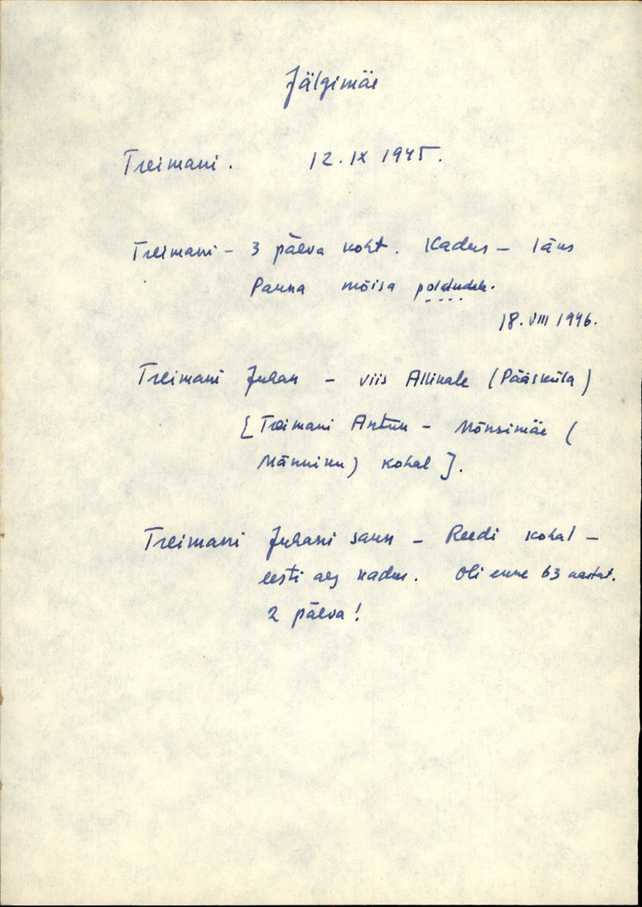 Jälgimäe
Treimani. 12. IX 1945.
Treimani – 3 päeva koht. Kadus – läks
Pauna mõisa põldudele.
18. VIII 1946.
Treimani Juhan – viis Allikale (Pääsküla)
[Treimani Antun – Mõnsimäe (
Männiku) kohal].
Treimani Juhani saun – Reedi kohal –
eesti aeg kadus. Oli enne 63 aastat.
2 päeva!